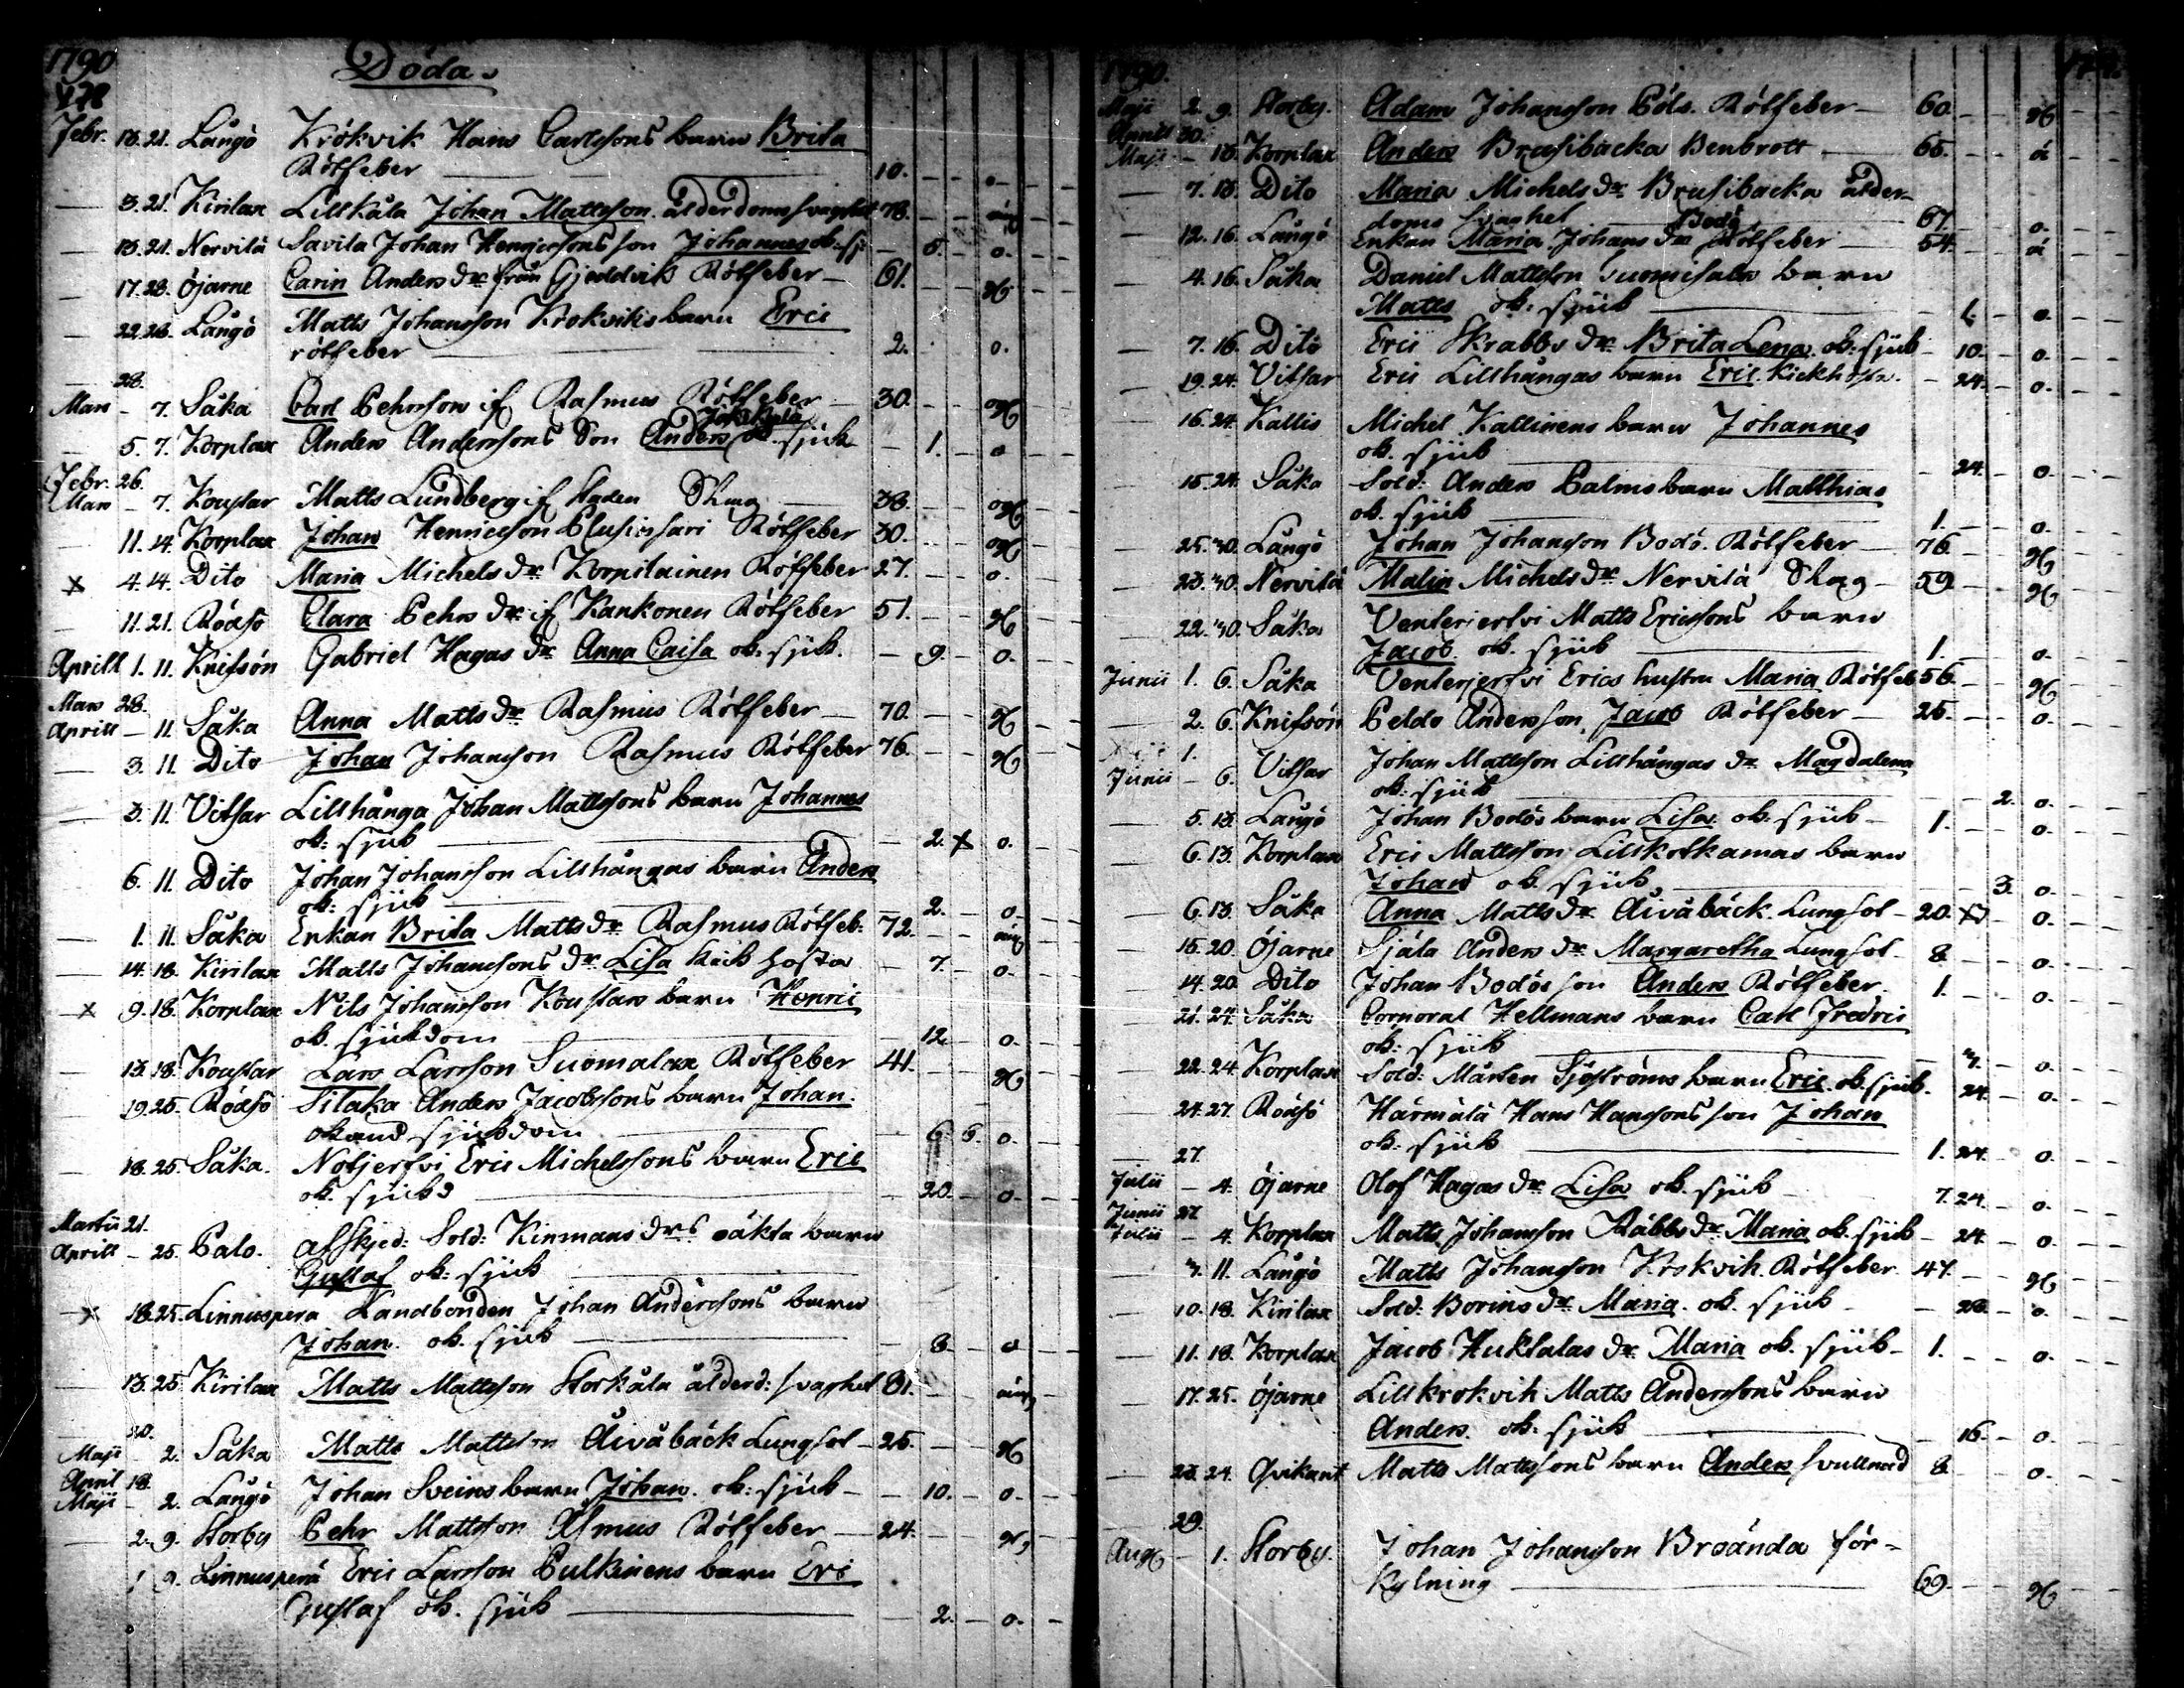 1790
Döda.
Febr. 13. 21. Långö Krökvik Hans Carlssons barn Brita
Rötfeber 10.
3. 21. Kirilax Lillkåla Johan Mattsson ålderdoms svaghet 78.
13. 21. Nervilä Savila Johan son Johannes ok: sj: 5. o.
17. 28. Öjarne Carin Anders dr från Gjeddvik Rötfeber 61. g
22. 28. Långö Matts Johansson Krokviks barn Eric
rötfeber 2. o.
28.
Mars 7. Såka Carl Pehrsson if Rasmus Rötfeber 30. og
5. 7. Korplax Anders Anderssons Son Anders ok. sjuk 1. o
Febr. 26.
Mars 7. Koustar Matts Lundberg if Staden Slag 38. og
11. 14. Korplax Johan Henricsson Plusinsari Rötfeber 30. og
x 4. 14. Dito Maria Michels dr Korpilainen Rötfeber 27. o.
11. 21. Rödsö Clara Pehrs dr if Kankonen Rötfeber 51. g
Aprill 1. 11. Knifsön Gabriel Hagas dr Anna Caisa ok. sjuk. 9. o.
Mars 28.
Aprill 11. Såka Anna Matts dr Rasmus Rötfeber 70. g
3. 11. Dito Johan Johansson Rasmus Rötfeber 76. g
3. 11. Vitsar Lillhånga Johan Mattssons barn Johannes
ok: sjuk 2. x o.
6. 11. Dito Johan Johansson Lillhångas barn Anders
ok: sjuk 2. o.
1. 11. Såka Enkan Brita Matts dr Rasmus Rötfeb: 72.
14. 18. Kirilax Matts Johanssons dr Lisa Kikhosta 7. o.
x 9. 18. Korplax Nils Johansson Koustars barn Henric
ok. sjukdom 12. o.
13. 18. Koustar Lars Larsson Suomalax Rötfeber 41. g
19. 25. Rödsö Silaka Anders Jacobssons barn Johan.
okänd sjukdom 6. 6. o.
18. 25. Såka. Notjerfvi Eric Michelssons barn Eric
ok. sjukd 20. o.
Martii 21.
Aprill 25. Palo. afskjed: Sold: Kinmans drs oäkta barn
Gustaf ok: sjuk
x 18. 25. Linnuspera Landbonden Johan Anderssons barn
Johan. ok. sjuk 8. o
13. 25. Kirilax Matts Mattsson Storkåla ålderd: svaghet 81.
30.
Maji 2. Såka Matts Mattsson Åivåbäck Lungsot 25. g
April 18.
Maji 2. Långö Johan Sveins barn Johan. ok: sjuk 10. o.
2. 9. Storby Pehr Mattsson Åsmus Rötfeber 24. g
1 9. Linnusperä Eric Larsson Pulkinens barn Eric
Gustaf ok. sjuk 2. o.
1790.
Maji 2. 9. Storby. Adam Johansson Pöls. Rötfeber 60. g
Aprill 30.
Maji 13. Korplax Anders Brusibacka Benbrott 65. á
7. 13. Dito Maria Michels dr Brusibacka ålder-
doms svaghet 67. o.
Bodö
12. 16. Långö Enkan Maria Johans dr Rötfeber 54. á
4. 16. Såka Daniel Mattsson Suomisalos barn
Matts ok: sjuk o.
7. 16. Dito Eric Skrabbs dr Brita Lena. ok: sjuk 10. o.
19. 24. Vitsar Eric Lillhångas barn Eric. Kickhosta. 24. o.
16. 24. Kallis Michel Kallinens barn Johannes
ok. sjuk 24. o.
15. 24. Såka Sold: Anders Palms barn Matthias
ok. sjuk 1. o.
25. 30. Långö Johan Johansson Bodö. Rötfeber 76. g
23. 30. Nervilä Malin Michels dr Nervilä Slag 59. g
22. 30. Såka Venterjerfvi Matts Ericssons barn
Jacob. ok. sjuk 1. o.
Junii 1. 6. Såka Venterjerfvi Erics hustru Maria Rötfeb 56. g
2. 6. Knifsön Peldo Andersson Jacob Rötfeber 25. o.
1.
Junii 6. Vitsar Johan Mattsson Lillhångas dr Magdalena
ok: sjuk 2. o.
5. 13. Långö Johan Bodös barn Lisa ok. sjuk 1. o.
6. 13. Korplax Eric Mattsson Lillkotkamas barn
Johan ok. sjuk 3. o.
6. 13. Såka Anna Matts dr Åivåbäck. Lungsot 20. o.
15. 20. Öjarne Sjåla Anders dr Margaretha Lungsot 8 o.
14. 20. Dito Johan Bodös son Anders Rötfeber. 1. o.
21. 27. Såka Corporal Hellmans barn Carl Fredric
ok: sjuk 3. o.
22. 24. Korplax Sold: Mårten Sjöströms barn Eric ok. sjuk. 24. o.
24. 27. Rödsö Härmälä Hans Hanssons son Johan
ok: sjuk 1. 24. o.
27.
Julii 4. Öjarne Olof Hagas dr Lisa ok. sjuk 7. 24. o.
Junii 27
Julii 4. Korplax Matts Johansson Räbbs dr Maria ok. sjuk 24. o.
3. 11. Långö Matts Johansson Krokvik. Rötfeber 47. g
10. 18. Kirilax Sold: Borins dr Maria. ok. sjuk 28. o.
11. 18. Korplax Jacob Huktalas dr Maria ok. sjuk 1. o.
17. 25. Öjarne Lillkrokvik Matts Anderssons barn
Anders. ok: sjuk 16. o.
23. 24. Qvikant Matts Mattssons barn Anders svullnad 8 o.
29.
Aug 1. Storby. Johan Johansson Broända för-
kylning 69. g